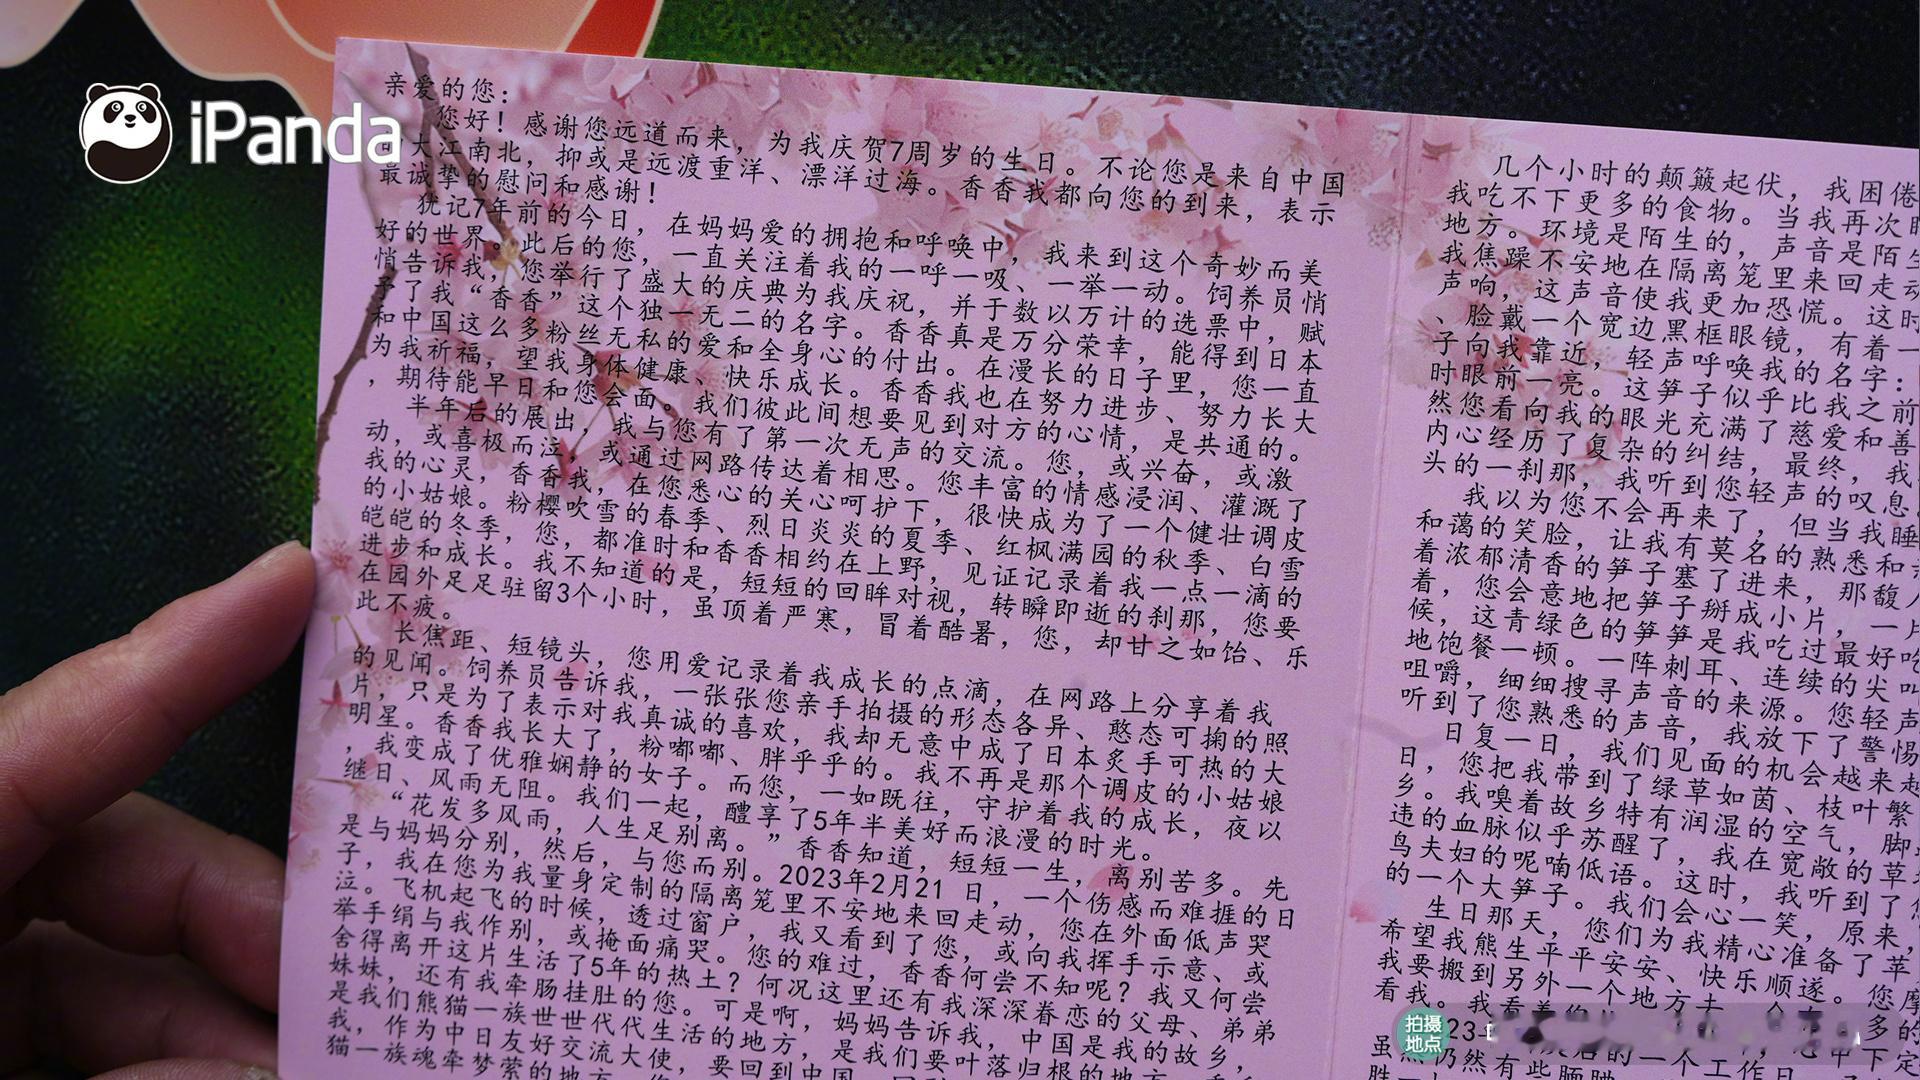 iPanda
亲爱的您：
您好！感谢您远道而来，为我庆贺7周岁的生日。不论您是来自中国
大江南北，抑或是远渡重洋、漂洋过海。香香我都向您的到来，表示
最诚挚的慰问和感谢！
犹记7年前的今日，在妈妈爱的拥抱和呼唤中，我来到这个奇妙而美
好的世界。此后的您，一直关注着我的一呼一吸、一举一动。饲养员悄
悄告诉我，您举行了盛大的庆典为我庆祝，并于数以万计的选票中，赋
予了我“香香”这个独一无二的名字。香香真是万分荣幸，能得到日本
和中国这么多粉丝无私的爱和全身心的付出。在漫长的日子里，您一直
为我祈福，望我身体健康、快乐成长。香香我也在努力进步、努力长大
，期待能早日和您会面。我们彼此间想要见到对方的心情，是共通的。
半年后的展出，我与您有了第一次无声的交流。您，或兴奋，或激
动，或喜极而泣，或通过网路传达着相思。您丰富的情感浸润、灌溉了
我的心灵，香香我，在您悉心的关心呵护下，很快成为了一个健壮调皮
的小姑娘。粉樱吹雪的春季、烈日炎炎的夏季、红枫满园的秋季、白雪
皑皑的冬季，您，都准时和香香相约在上野，见证记录着我一点一滴的
进步和成长。我不知道的是，短短的回眸对视，转瞬即逝的刹那，您要
在园外足足驻留3个小时，虽顶着严寒，冒着酷暑，您，却甘之如饴、乐
此不疲。
长焦距、短镜头，您用爱记录着我成长的点滴，在网路上分享着我
的见闻。饲养员告诉我，一张张您亲手拍摄的形态各异、憨态可掬的照
片，只是为了表示对我真诚的喜欢，我却无意中成了日本炙手可热的大
明星。香香我长大了，粉嘟嘟、胖乎乎的。我不再是那个调皮的小姑娘
，我变成了优雅娴静的女子。而您，一如既往，守护着我的成长，夜以
继日、风雨无阻。我们一起，醴享了5年半美好而浪漫的时光。
“花发多风雨，人生足别离。”香香知道，短短一生，离别苦多。先
是与妈妈分别，然后，与您而别。2023年2月21日，一个伤感而难捱的日
子，我在您为我量身定制的隔离笼里不安地来回走动，您在外面低声哭
泣。飞机起飞的时候，透过窗户，我又看到了您，或向我挥手示意、或
举手绢与我作别，或掩面痛哭。您的难过，香香何尝不知呢？我又何尝
舍得离开这片生活了5年的热土？何况这里还有我深深眷恋的父母、弟弟
妹妹，还有我牵肠挂肚的您。可是啊，妈妈告诉我，中国是我的故乡，
是我们熊猫一族世世代代生活的地方，是我们要叶落归根的地方。
我，作为中日友好交流大使，要回到中国
猫一族魂牵梦萦的地方
几个小时的颠簸起伏，我困倦
我吃不下更多的食物。当我再次
地方。环境是陌生的，声音是陌生
我焦躁不安地在隔离笼里来回走动
声响，这声音使我更加恐慌。这时
、脸戴一个宽边黑框眼镜，有着一
子向我靠近，轻声呼唤我的名字：
时眼前一亮。这笋子似乎比我之前
然您看向我的眼光充满了慈爱和善
内心经历了复杂的纠结，最终，我
头的一刹那，我听到您轻声的叹息
我以为您不会再来了，但当我睡
和蔼的笑脸，让我有莫名的熟悉和
着浓郁清香的笋子塞了进来，那馥
着，您会意地把笋子掰成小片，一片
候，这青绿色的笋笋是我吃过最好吃
地饱餐一顿。一阵刺耳、连续的尖叫
咀嚼，细细搜寻声音的来源。您轻声
听到了您熟悉的声音，我放下了警惕
日复一日，我们见面的机会越来越
日，您把我带到了绿草如茵、枝叶繁
乡。我嗅着故乡特有润湿的空气，脚
违的血脉似乎苏醒了，我在宽敞的草
鸟夫妇的呢喃低语。这时，我听到了
的一个大笋子。我们会心一笑，原来，
生日那天，您们为我精心准备了苹
希望我熊生平平安安、快乐顺遂。您
我要搬到另外一个地方去
看我。我看着
拍摄
地点